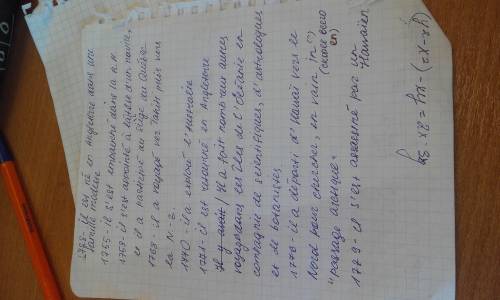 1728- il est né en Angleterre dans une
famille modeste
1755- il s'est embauché dans la R.N.
1759- il s'est à d'un navire,
et il a au siège du Québec
1768- il a voyagé ver Tahiti puis vers
la N-Z.
1770- il a exploré l'Australie
1771- il est retourné en Angleterre
Il y avait / Il a fait nombreux autres
voyages dans les îles de l'Océanie en
compagnie de scientifiques, d'astrologues
et de botanistes
1778- il a départi d'Hawaï vers le
Nord pour chercher, en vain in?
(скорее всего
en)
"passage arctique"
1779- il s'est assassiné par un
Hawaïen